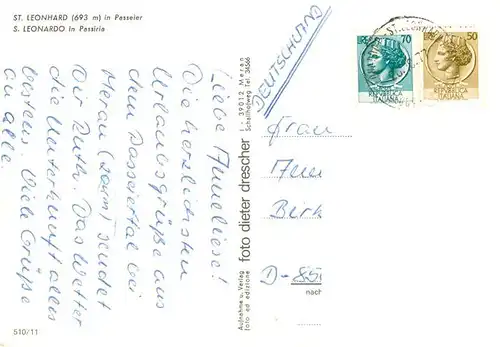 ST. LEONHARD (693 m) in Passeier
S. LEONARDO in Passiria
Liebe Anneliese!
Die herzlichsten
Urlaubsgrüße aus
dem Passeiertal bei
Meran (20km) sendet
Dir Ruth. Das Wetter
die Unterkunft alles
bestens. Viele Grüße
an alle.
510/11
Aufnahme u. Verlag
foto ed edizione
foto dieter drescher
I - 39012 Meran
Schallhofweg Tel. 34566
DEUTSCHLAND
LIRE 70
REPVBBLICA
ITALIANA
LIRE 50
REPVBBLICA
ITALIANA
Frau
Anne
Birk
D-85
nach